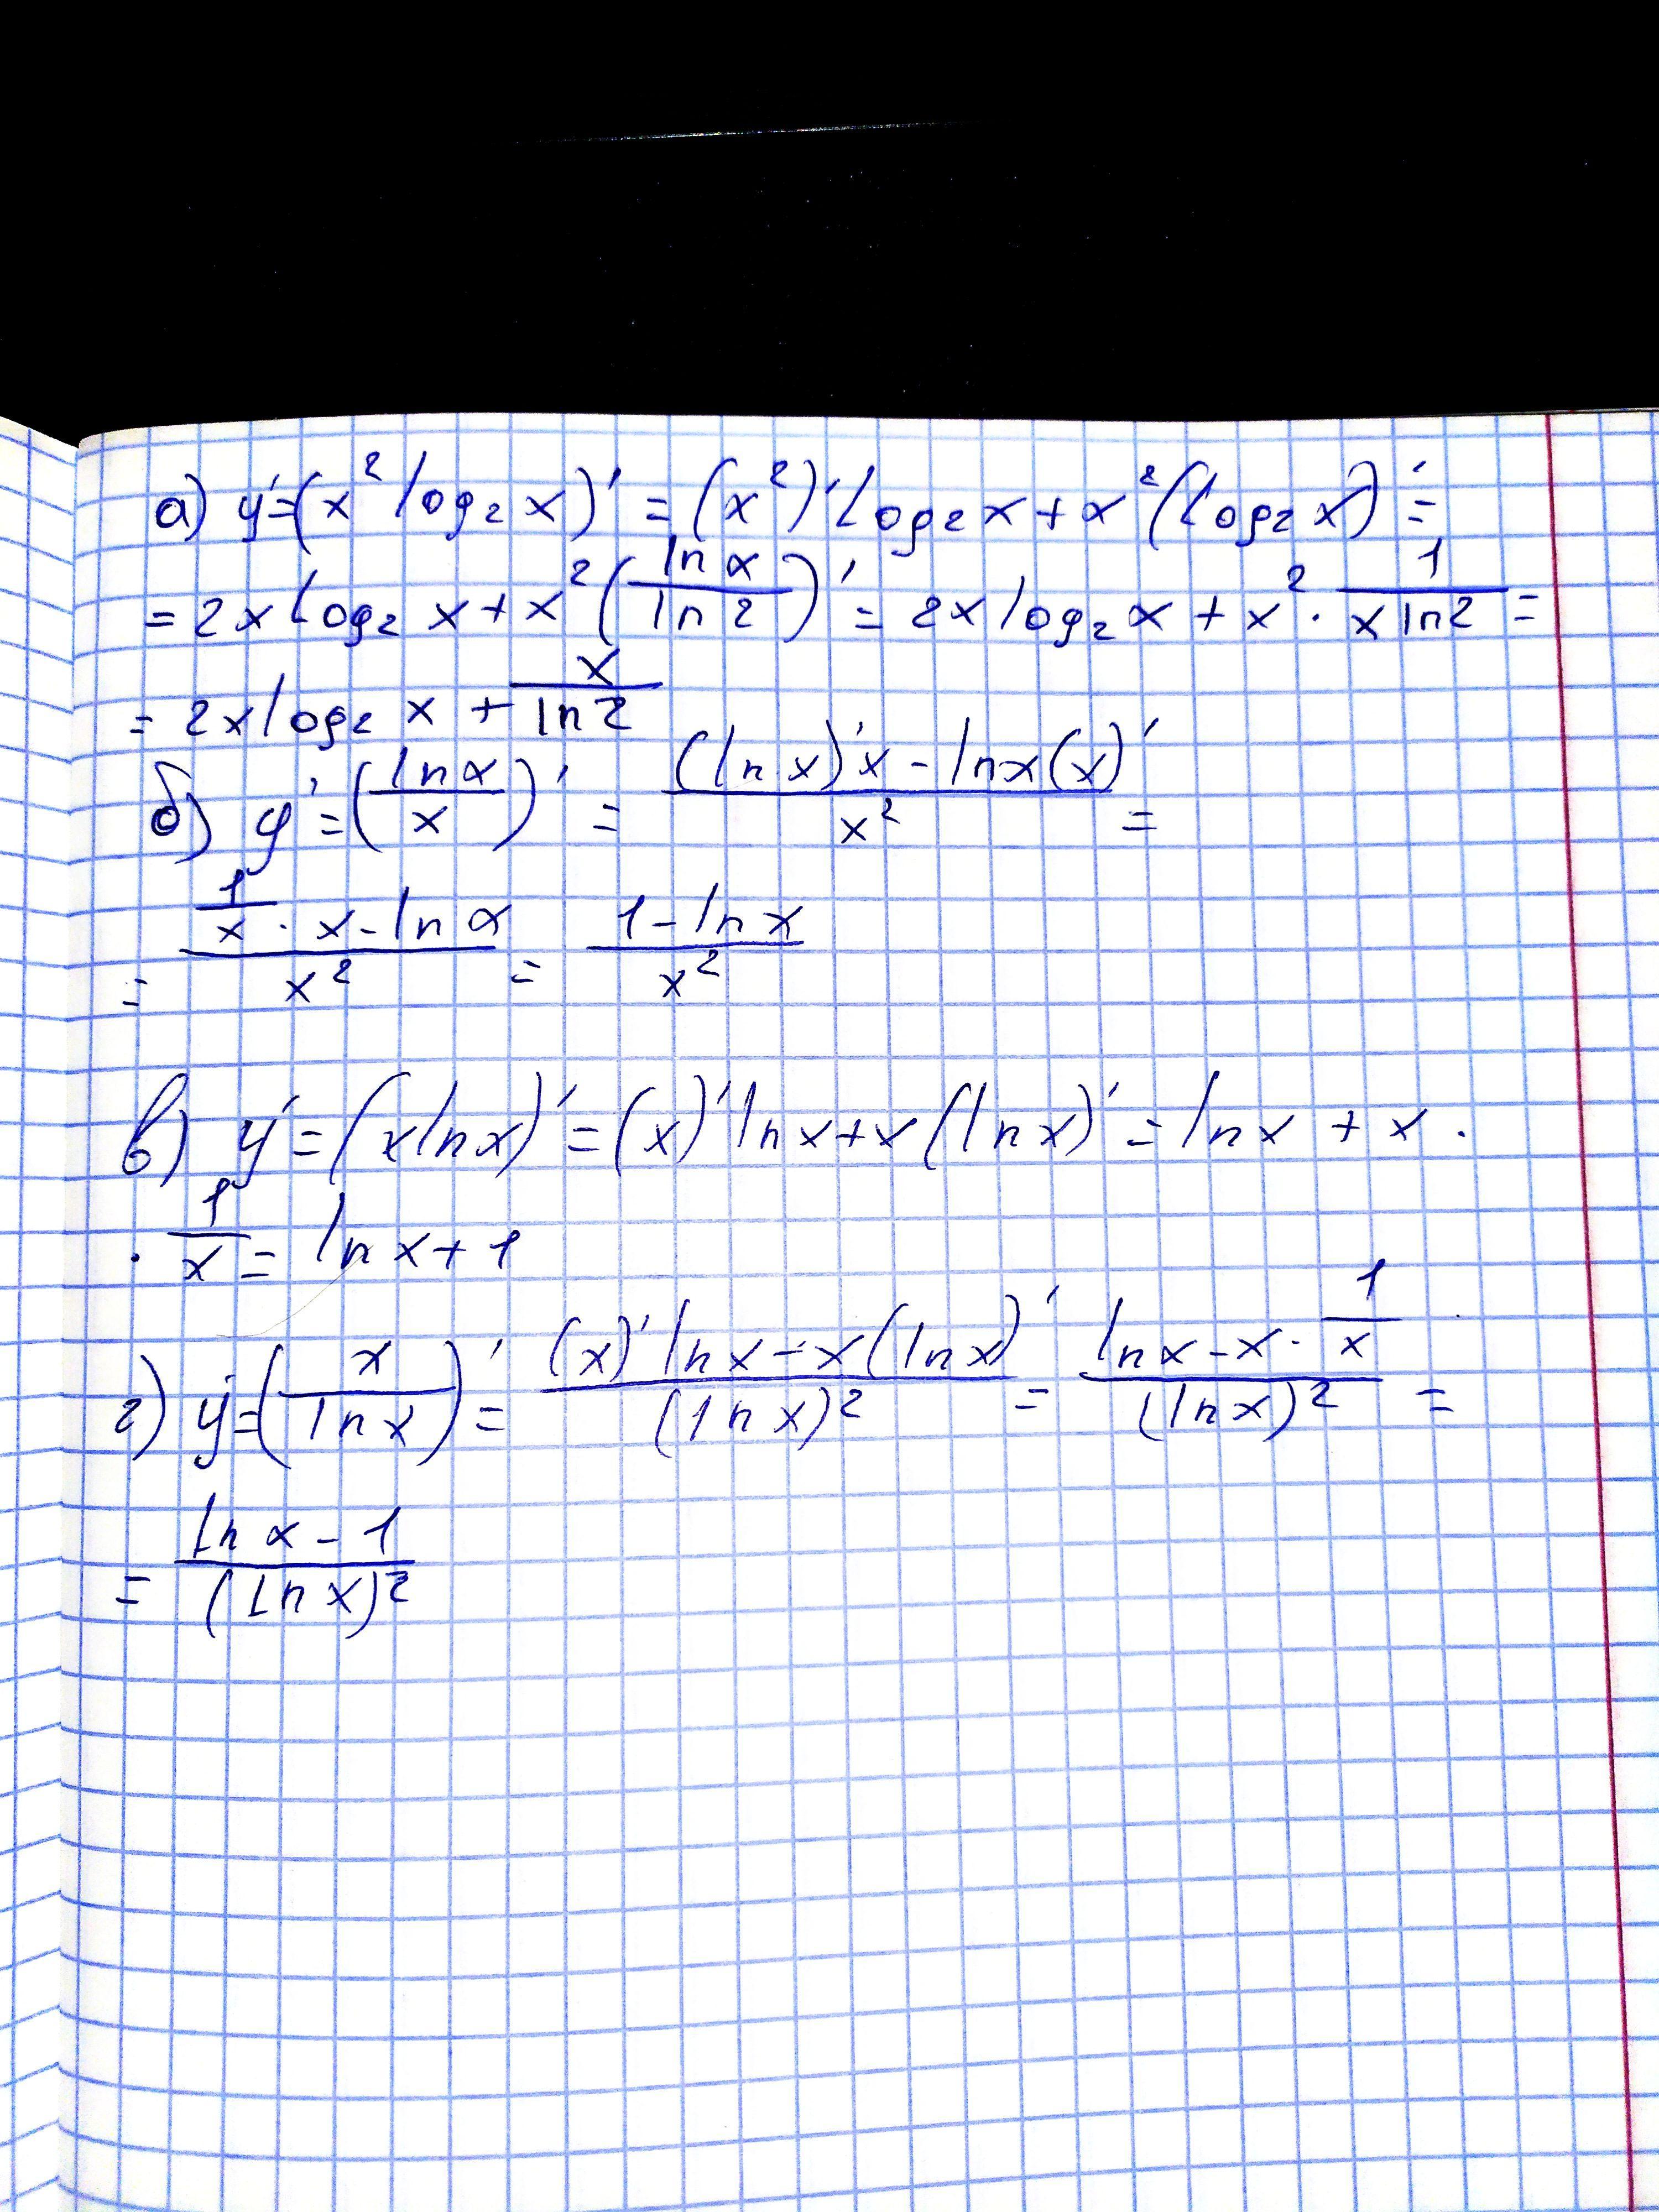 а) y' = (x² log₂ x)' = (x²)' log₂ x + x² (log₂ x)' =
= 2x log₂ x + x² (ln x / ln 2)' = 2x log₂ x + x² · 1 / (x ln 2) =
= 2x log₂ x + x / ln 2
б) y' = (ln x / x)' = ((ln x)' x - ln x (x)') / x² =
= (1/x · x - ln x) / x² = (1 - ln x) / x²
в) y' = (x ln x)' = (x)' ln x + x (ln x)' = ln x + x ·
· 1/x = ln x + 1
г) y' = (x / ln x)' = ((x)' ln x - x (ln x)') / (ln x)² = (ln x - x · 1/x) / (ln x)² =
= (ln x - 1) / (ln x)²